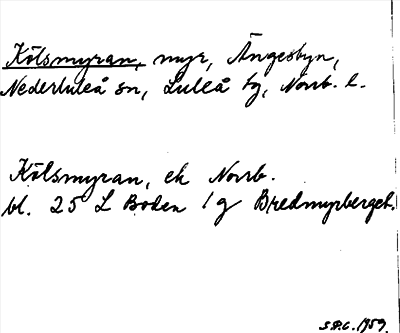 Kölsmyran, myr, Ängesbyn,
Nederluleå sn, Luleå tg, Norrb. l.
Kölsmyran, ek Norrb.
bl. 25 L Boden 1g Bredmyrberget.
S.P.C. 1959.